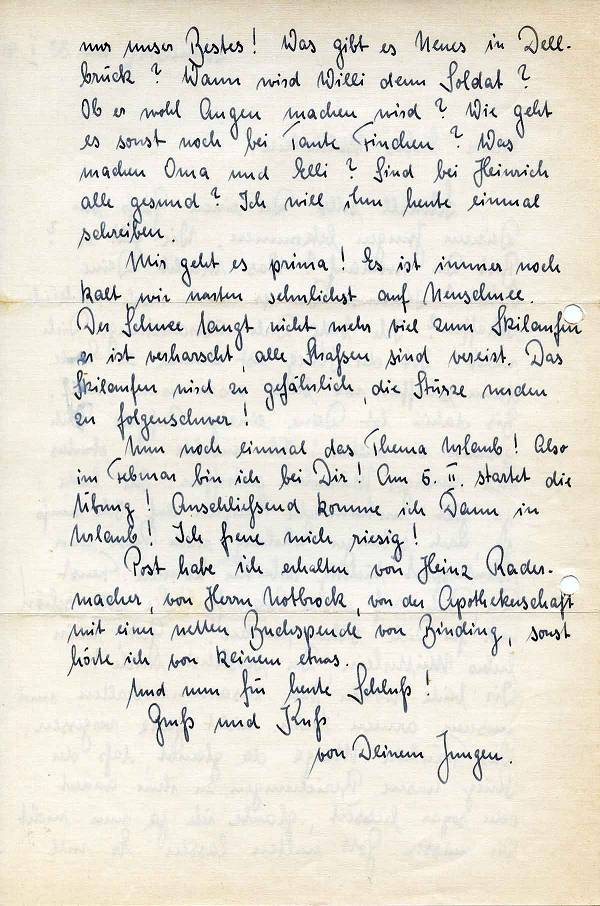 nur unser Bestes! Was gibt es Neues in Dell-
brück? Wann wird Willi denn Soldat?
Ob er wohl Augen machen wird? Wie geht
es sonst noch bei Tante Finchen? Was
machen Oma und Elli? Sind bei Heinrich
alle gesund? Ich will ihm heute einmal
schreiben.
Mir geht es prima! Es ist immer noch
kalt, wir warten sehnlichst auf Neuschnee.
Der Schnee langt nicht mehr viel zum Skilaufen
er ist verharscht, alle Strassen sind vereist. Das
Skilaufen wird zu gefährlich, die Stürze werden
zu folgenschwer!
Nun noch einmal das Thema Urlaub! Also
im Februar bin ich bei Dir! Am 6. II. startet die
Übung! Anschließend komme ich Dann in
Urlaub! Ich freue mich riesig!
Post habe ich erhalten von Heinz Rader-
macher, von Herrn Notbrock, von der Apothekerschaft
mit einer netten Buchspende von Binding, sonst
hörte ich von keinem etwas.
Und nun für heute Schluß!
Gruß und Kuß
von Deinem Jungen.